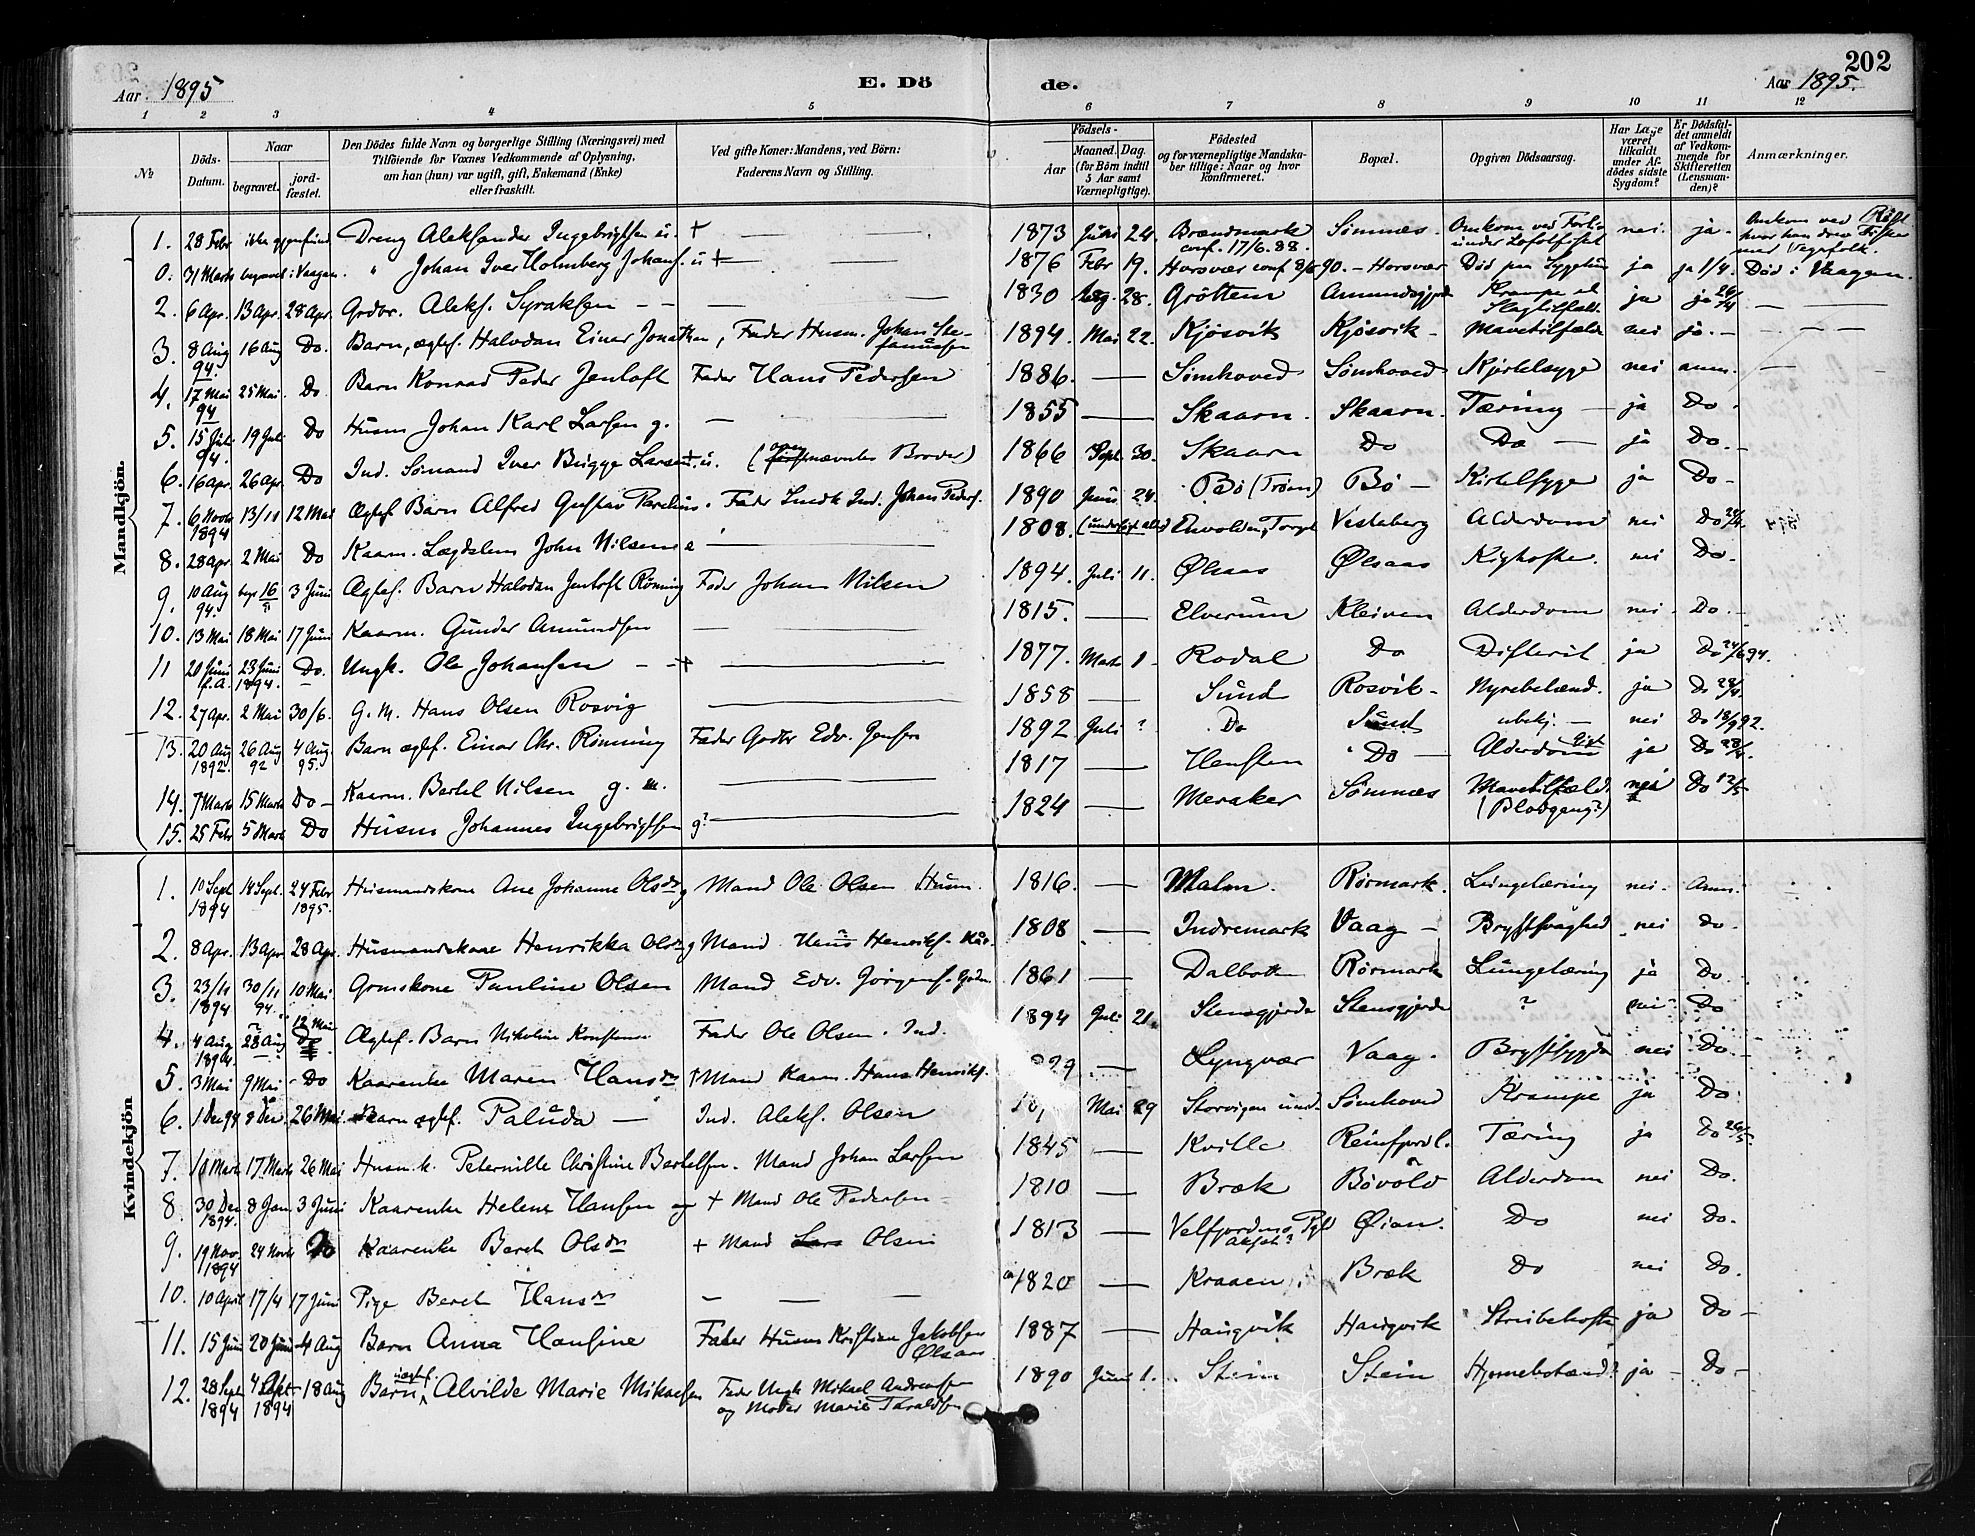 202
Aar 1895 E. Dö de. Aar 1895.
1 2 3 4 5 6 7 8 9 10 11 12
№
Döds-Datum.
Naar
begravet.
jord-fæstet.
Den Dödes fulde Navn og borgerlige Stilling (Næringsvei) med
Tilföiende for Voxnes Vedkommende af Oplysning,
om han (hun) var ugift, gift, Enkemand (Enke)
eller fraskilt.
Ved gifte Koner: Mandens, ved Börn:
Faderens Navn og Stilling.
Födsels-
Aar
Maaned. Dag.
(for Börn indtil
5 Aar samt
Værnepligtige).
Födested
og for værnepligtige Mandska-
ber tillige: Naar og hvor
konfirmeret.
Bopæl.
Opgiven Dödsaarsag.
Har Læge
været
tilkaldt
under Af-
dödes sidste
Sygdom?
Er Dödsfal-
det anmeldt
af Vedkom-
mende for
Skifteretten
(Lensman-
den)?
Anmærkninger.
Mandkjön.
1. 28 Febr ikke gjenfund. Dreng Aleksander Ingebrigtsen u. + — — 1873 Juni 24. Brændmark conf. 17/6.88. Sömnæs. Omkom ved Forlis under Lofotfisket nei. ja. Omkom ved Röst hvor han drev Fisker med Vegafolk.
0. 31 Marts begravet i Vaagan. " Johan Iver Holmberg Johans. u + — 1876 Febr 19. Horsvær conf 8/6 90. — Horsvær Död paa Sygehus ja ja 1/4. Död i Vaagen.
2. 6 Apr. 13 Apr. 28 Apr. Grdbr. Aleks. Syraksen — — 1830 Aug. 28. Gröttem Amundsgjerde Krampe el Slagtilfæld. ja ja 26/4 —
3. 8 Aug 94. 16 Aug Do. Barn, ægtef. Halvdan Einar Jonathan, Fader Husm. Johan Ste-fanussen 1894. Mai 22. Kjösvik Kjösvik — Mavetilfælde nei ja. —
4. 17 Mai 94 25 Mai Do Barn Konrad Peder Jentoft Fader Hans Pedersen 1886. — Sömhoved Sömhoved Kjertelsyge nei anm. —
5. 15 Juli 94. 19 Juli Do Husm Johan Karl Larsen g. — 1855 — Skaarn. Skaarn. Tæring — ja Do.
6. 16 Apr. 26 Apr. Do Ind. Sömand Iver Bugge Larsen u. (ovennævntes Broder) 1866 Sept. 30. Skaarn Do Do — ja Do. —
7. 6 Novbr 1894 13/11 12 Mai Ægtef. Barn Alfred Gustav Parelius. Fader Smedk Ind. Johan Peders. 1890 Juni 24. Bö (Tröm) Bö — Kirtelsyge ja Do —
8. 28 Apr. 2 Mai Do Kaarm. Lægdslem John Nilsen e — 1808. Vestaberg Alderdom nei Do 28/4.
9. 10 Aug 94. begr 16 3 Juni Ægtef. Barn Halvdan Jentoft Rönning Fader Johan Nilsen 1894. Juli 11. Ölsaas Ölsaas Kighoste. nei Do.
10. 13 Mai 18 Mai 17 Juni Kaarm. Gunder Amundsen — 1815. — Elverum Kleiven Alderdom nei. Do. —
11 20 Juni f.A. 23 Juni 1894. Do. Ungk. Ole Johansen — + — 1877. Marts 1 — Rodal Do Difterit ja Do 24/6 94.
12. 27 Apr. 2 Mai 30/6. G. M. Hans Olsen Rosvig — 1858 — Sund Rosvik — Nyrebetænd. ja Do 28/4.
13. 20 Aug 1892. 26 Aug 92 4 Aug 95. Barn ægtef. Einar Chr. Rönning Fader Gdbr Edv. Jensen 1892 Juli ? Do Sund ubekj. — nei Do 18/9 92.
14. 7 Marts 15 Marts Do — Kaarm. Bertel Nilsen g. m. — 1817 — Hensten Do — Alderdom Gigt ja Do 28/4.
15. 25 Febr 5 Marts Do Husm Johannes Ingebrigtsen g? — 1824 — Meraker Sömnæs Mavetilfæld. (Blodgang?) nei Do 12/5
Kvindekjön
1. 10 Sept 1894 14 Sept. 24 Febr 1895. Husmandskone Ane Johanne Olsdtr g Mand Ole Olsen Husm. 1816. — Malm. Rörmark. Lungetæring nei. Anm.
2. 8 Apr. 13 Apr 28 Apr. Husmandskone Henrikka Olsdtr g Mand Hans Henriks. 1808 — Indremark Vaag — Brystsvaghed nei Do.
3. 23/11 1894 30/11 94. 10 Mai. Grmskone Pauline Olsen Mand Edv. Jörgens. Gdm. 1861 — Dalbotn Rörmark Lungetæring ja Do.
4. 4 Aug 1894. 28 Aug 12 Mai Do Ægtef. Barn Nikoline Konstanse Fader Ole Olsen. Ind. 1894 Juli 21. Stensgjerde Stensgjerde ? nei Do
5. 3 Mai 9 Mai — Do Kaarenke Maren Hansdtr + Mand Kaarm. Hans Henriks. 29 — Lyngvær Vaag. Brystsygdom nei Do. —
6. 1 Dec 94 8 Dec. 26 Mai. Barn ægtef. Paluda — Ind. Aleks. Olsen Mai 29 Storvigen ind. Sömhoved Krampe ja Do.
7. 10 Marts 17 Marts 26 Mai Husm.k. Peternille Christine Bertelsen. Mand Johan Larsen 1845 — Kville Reinfjord. Tæring ja Do 26/5.
8. 30 Dec 1894. 8 Jan. 3 Juni Kaarenke Helene Hansen g + Mand Ole Pedersen — 1810 — Bræk Bövold Alderdom nei Do.
9. 19 Nov. 1894 24 Novbr Do Kaarenke Beret Olsdtr + Mand Lars Olsen 1813 — Velfjordens Pgd Øian. Do nei Do.
10. 10 April 17/4 17 Juni Pige Beret Hansdtr — — — 1820 — Kraaen Bræk Do nei Do.
11. 15 Juni 20 Juni 4 Aug Barn Anna Hansine Fader Husm Kristian Jakobsen Ölsaas 1887 — Haugvik Haugvik Strubehoste ja Do —
12. 28 Sept 1894 4 Okt 1894 18 Aug Barn uægtef. Alvilde Marie Mikaelsen Fader Ungk Mikael Andreassen og Moder Marie Taraldsen 1890 Juni 1. Stein Stein Hjernebetænd? ja — Do —